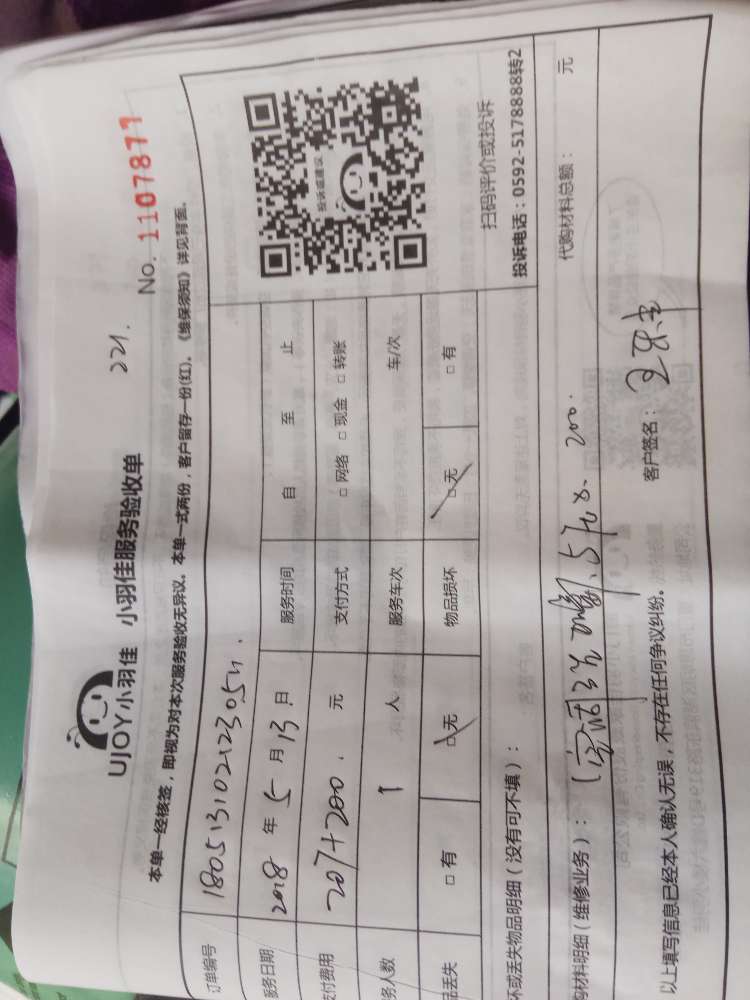 UJOY小羽佳 小羽佳服务验收单 221.
No. 1107877
本单一经核签，即视为对本次服务验收无异议。本单一式两份，客户留存一份(红)。《维保须知》详见背面。
订单编号 180513102123051
服务日期 2018 年 5 月 13 日 服务时间 自 至 止
支付费用 207+200. 元 支付方式 □ 网络 □ 现金 □ 转账
务人数 1 人 服务车次 车/次
品丢失 □ 有 □ 无 物品损坏 □ 无 □ 有
投诉或建议
扫码评价或投诉
投诉电话：0592-5178888转2
坏或丢失物品明细（没有可不填）：
购材料明细（维修业务）： 200. 代购材料总额： 元
以上填写信息已经本人确认无误，不存在任何争议纠纷。 客户签名：